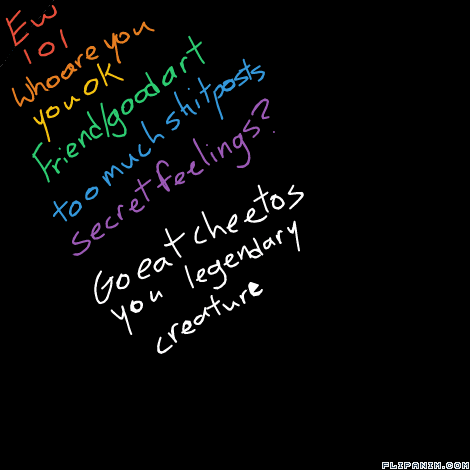 Ew
lol
Who are you
you OK
Friend/good art
too much shitposts
secret feelings?
Go eat cheetos
you legendary
creature
FLIPANIM.COM